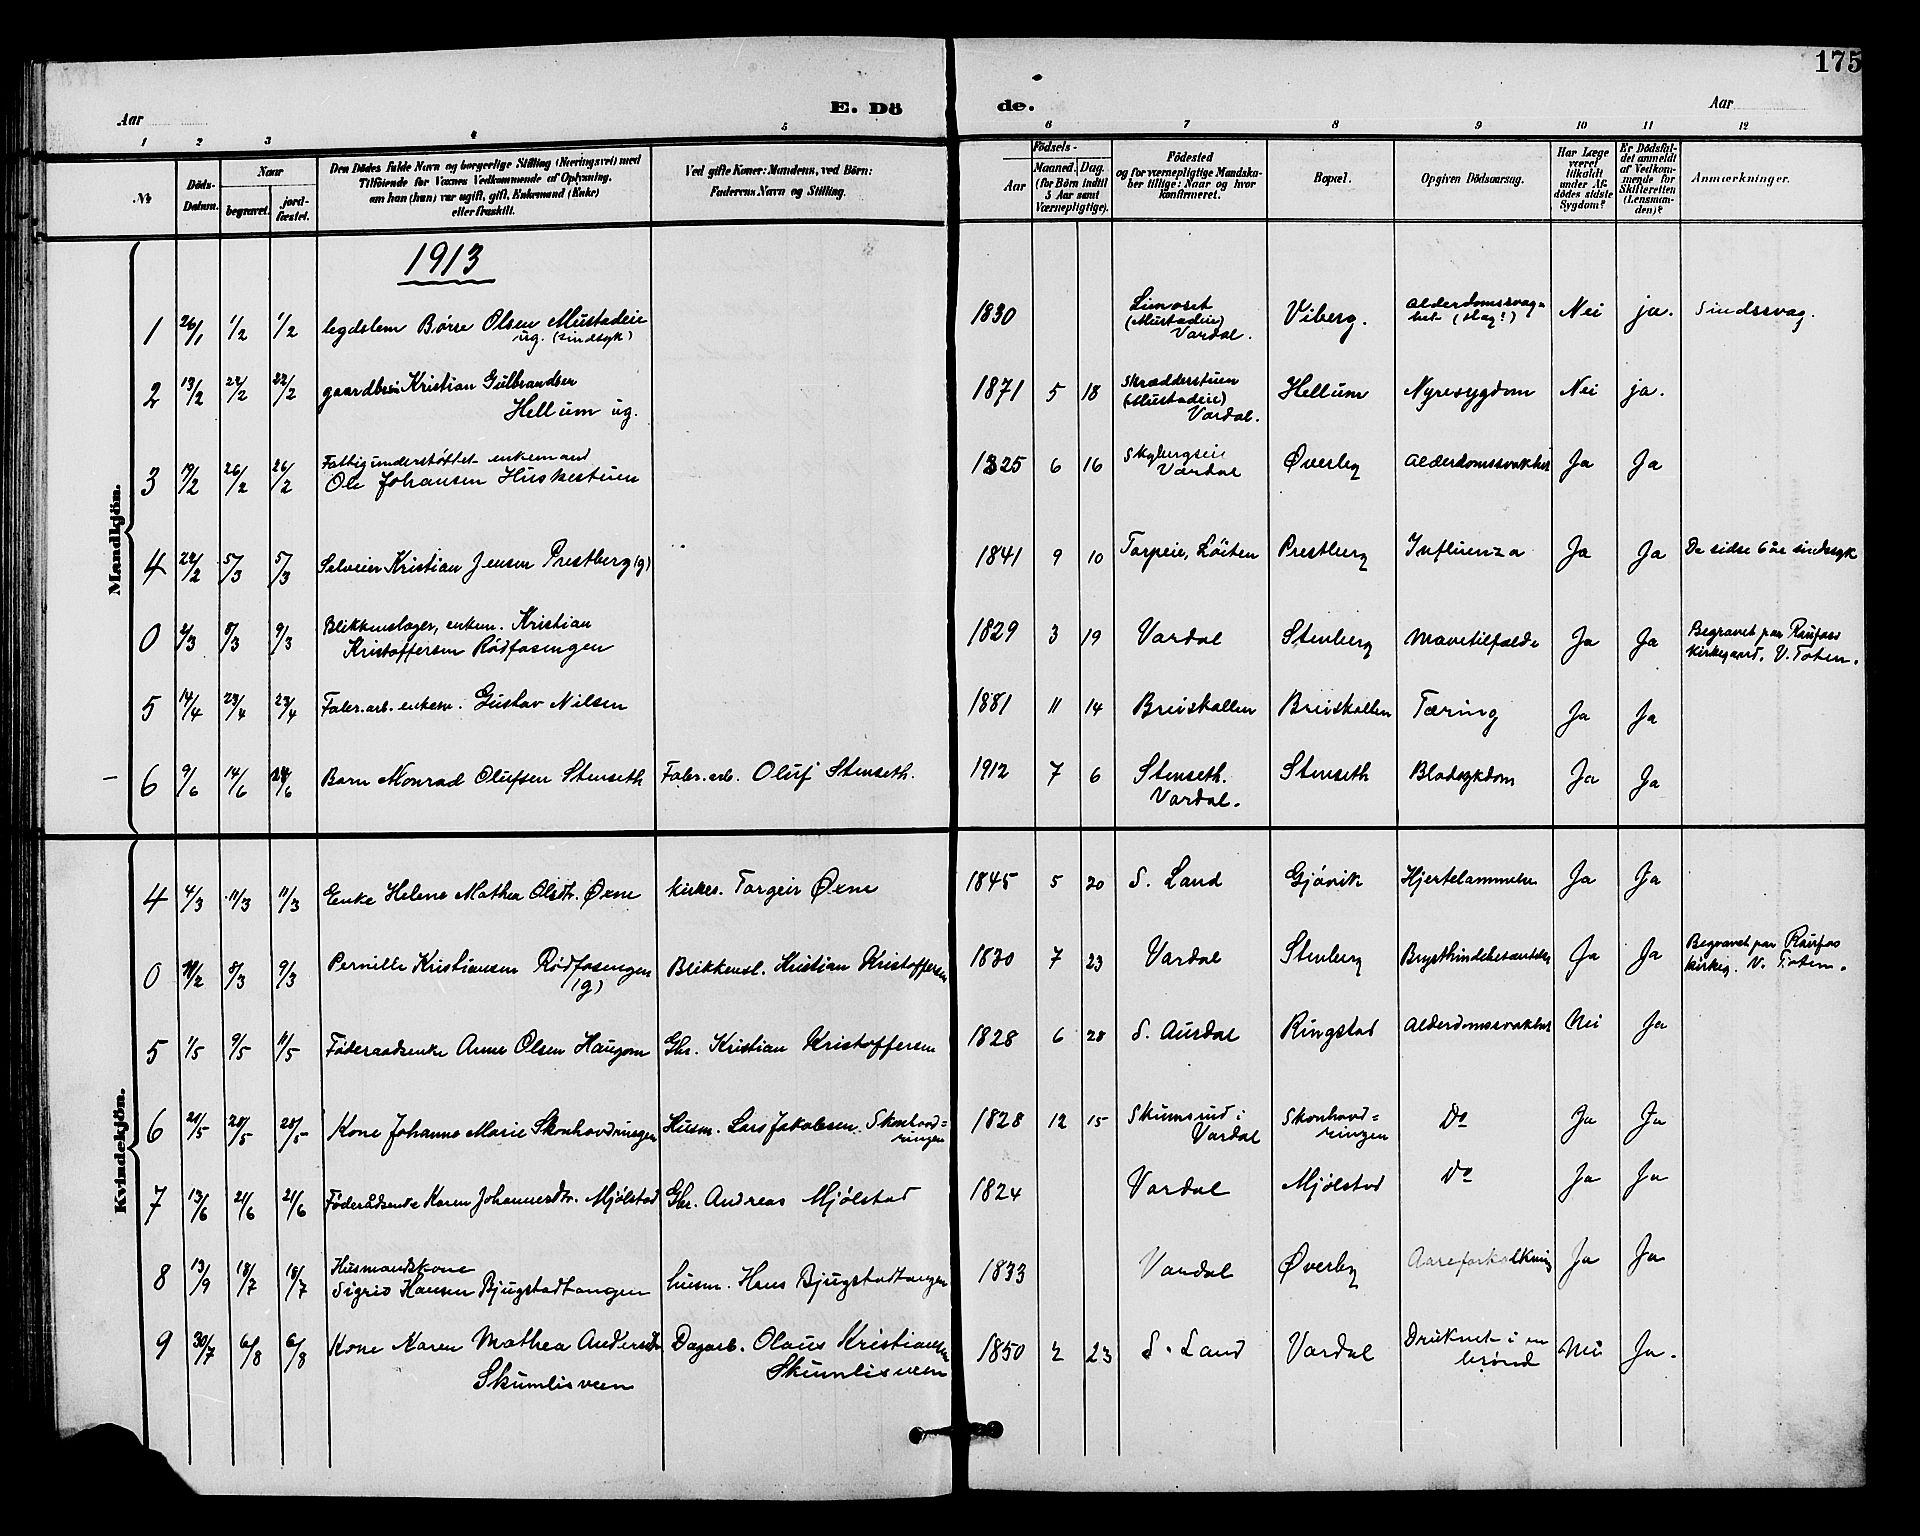 175
Aar
E. Dö
de.
Aar
1 2 3 4 5 6 7 8 9 10 11 12
№
Döds-
Datum.
Naar
begravet.
jord-
fæstet.
Den Dödes fulde Navn og borgerlige Stilling (Næringsvei) med
Tilföiende for Voxnes Vedkommende af Oplysning,
om han (hun) var ugift, gift, Enkemand (Enke)
eller fraskilt.
Ved gifte Koner: Mandens, ved Börn:
Faderens Navn og Stilling.
Födsels-
Aar
Maaned.
Dag.
(for Börn indtil
5 Aar samt
Værnepligtige).
Födested
og for værnepligtige Mandska-
ber tillige: Naar og hvor
konfirmeret.
Bopæl.
Opgiven Dödsaarsag.
Har Læge
været
tilkaldt
under Af-
dödes sidste
Sygdom?
Er Dödsfal-
det anmeldt
af Vedkom-
mende for
Skifteretten
(Lensman-
den)?
Anmærkninger.
Mandkjön.
1913
1 26/1 1/2 1/2 legdslem Børre Olsen Mustadeie
ug. (sindsyk)
1830 Limoset
(Mustadeie)
Vardal. Viberg. Alderdomssvag-
het (slag?) Nei ja. Sindssvag.
2 13/2 22/2 22/2 gaardbr. Kristian Gulbrandsen
Hellum ug.
1871 5 18 Skrædderstuen
(Mustadeie)
Vardal. Hellum Nyresygdom Nei ja.
3 19/2 26/2 26/2 Fattigunderstøttet enkemand
Ole Johansen Huskestuen
1825 6 16 Skybergseie
Vardal Øverby Alderdomssvakhet Ja Ja
4 24/2 5/3 5/3 Selveier Kristian Jensen Prestberg (g)
1841 9 10 Torpeie, Löiten Prestberg Influenza Ja Ja De sidse 6 år sindssyk
0 2/3 8/3 9/3 Blikkenslager, enkem. Kristian
Kristoffersen Rødfosengen
1829 3 19 Vardal Stenberg Mavetilfælde Ja Ja Begravet paa Raufoss
Kirkegaard, V. Toten.
5 14/4 23/4 23/4 Fabr. arb. enkem. Gustav Nilsen
1881 11 14 Breiskallen Breiskallen Tæring Ja Ja
6 9/6 14/6 /6 Barn Monrad Olufsen Stenseth Fabr. arb. Oluf Stenseth.
1912 7 6 Stenseth.
Vardal. Stenseth Blodsykdom Ja Ja
Kvindekjön.
4 4/3 11/3 11/3 Enke Helene Mathea Olsdtr. Øxne kirkes. Torgeir Øxne
1845 5 20 S. Land Gjövik Hjertelammelse Ja Ja
0 /2 8/3 9/3 Pernille Kristiansen Rødfosengen
(g) Blikkensl. Kristian Kristoffersen
1830 7 23 Vardal Stenberg Brysthindebetændelse Ja Ja Begravet paa Raufos
Kirkeg. V. Toten.
5 1/5 9/5 11/5 Føderaadsenke Anne Olsen Haugom Gbr. Kristian Kristoffersen
1828 6 28 S. Aurdal Ringstad Alderdomssvakhet Nei Ja
6 21/5 28/5 28/5 Kone Johanne Marie Skonhovdringen Husm. Lars Jakobsen Skonhovd=
ringen
1828 12 15 Skumsrud i
Vardal Skonhovd=
ringen Do Ja Ja
7 13/6 21/6 21/6 Føderådsenke Karen Johannesdtr. Mjølstad Gbr. Andreas Mjølstad
1824 Vardal Mjølstad Do Ja Ja
8 13/9 18/7 18/7 Husmandskone
Sigrid Hansen Bjugstadtangen husm. Hans Bjugstadtangen
1833 Vardal Øverby Aareforkalkning Ja Ja
9 30/7 6/8 6/8 Kone Karen Mathea Andersdtr.
Skumlisveen Dagarb. Olaus Kristiansen
Skumlisveen
1850 2 23 S. Land Vardal Druknet i en
brønd Nei Ja.